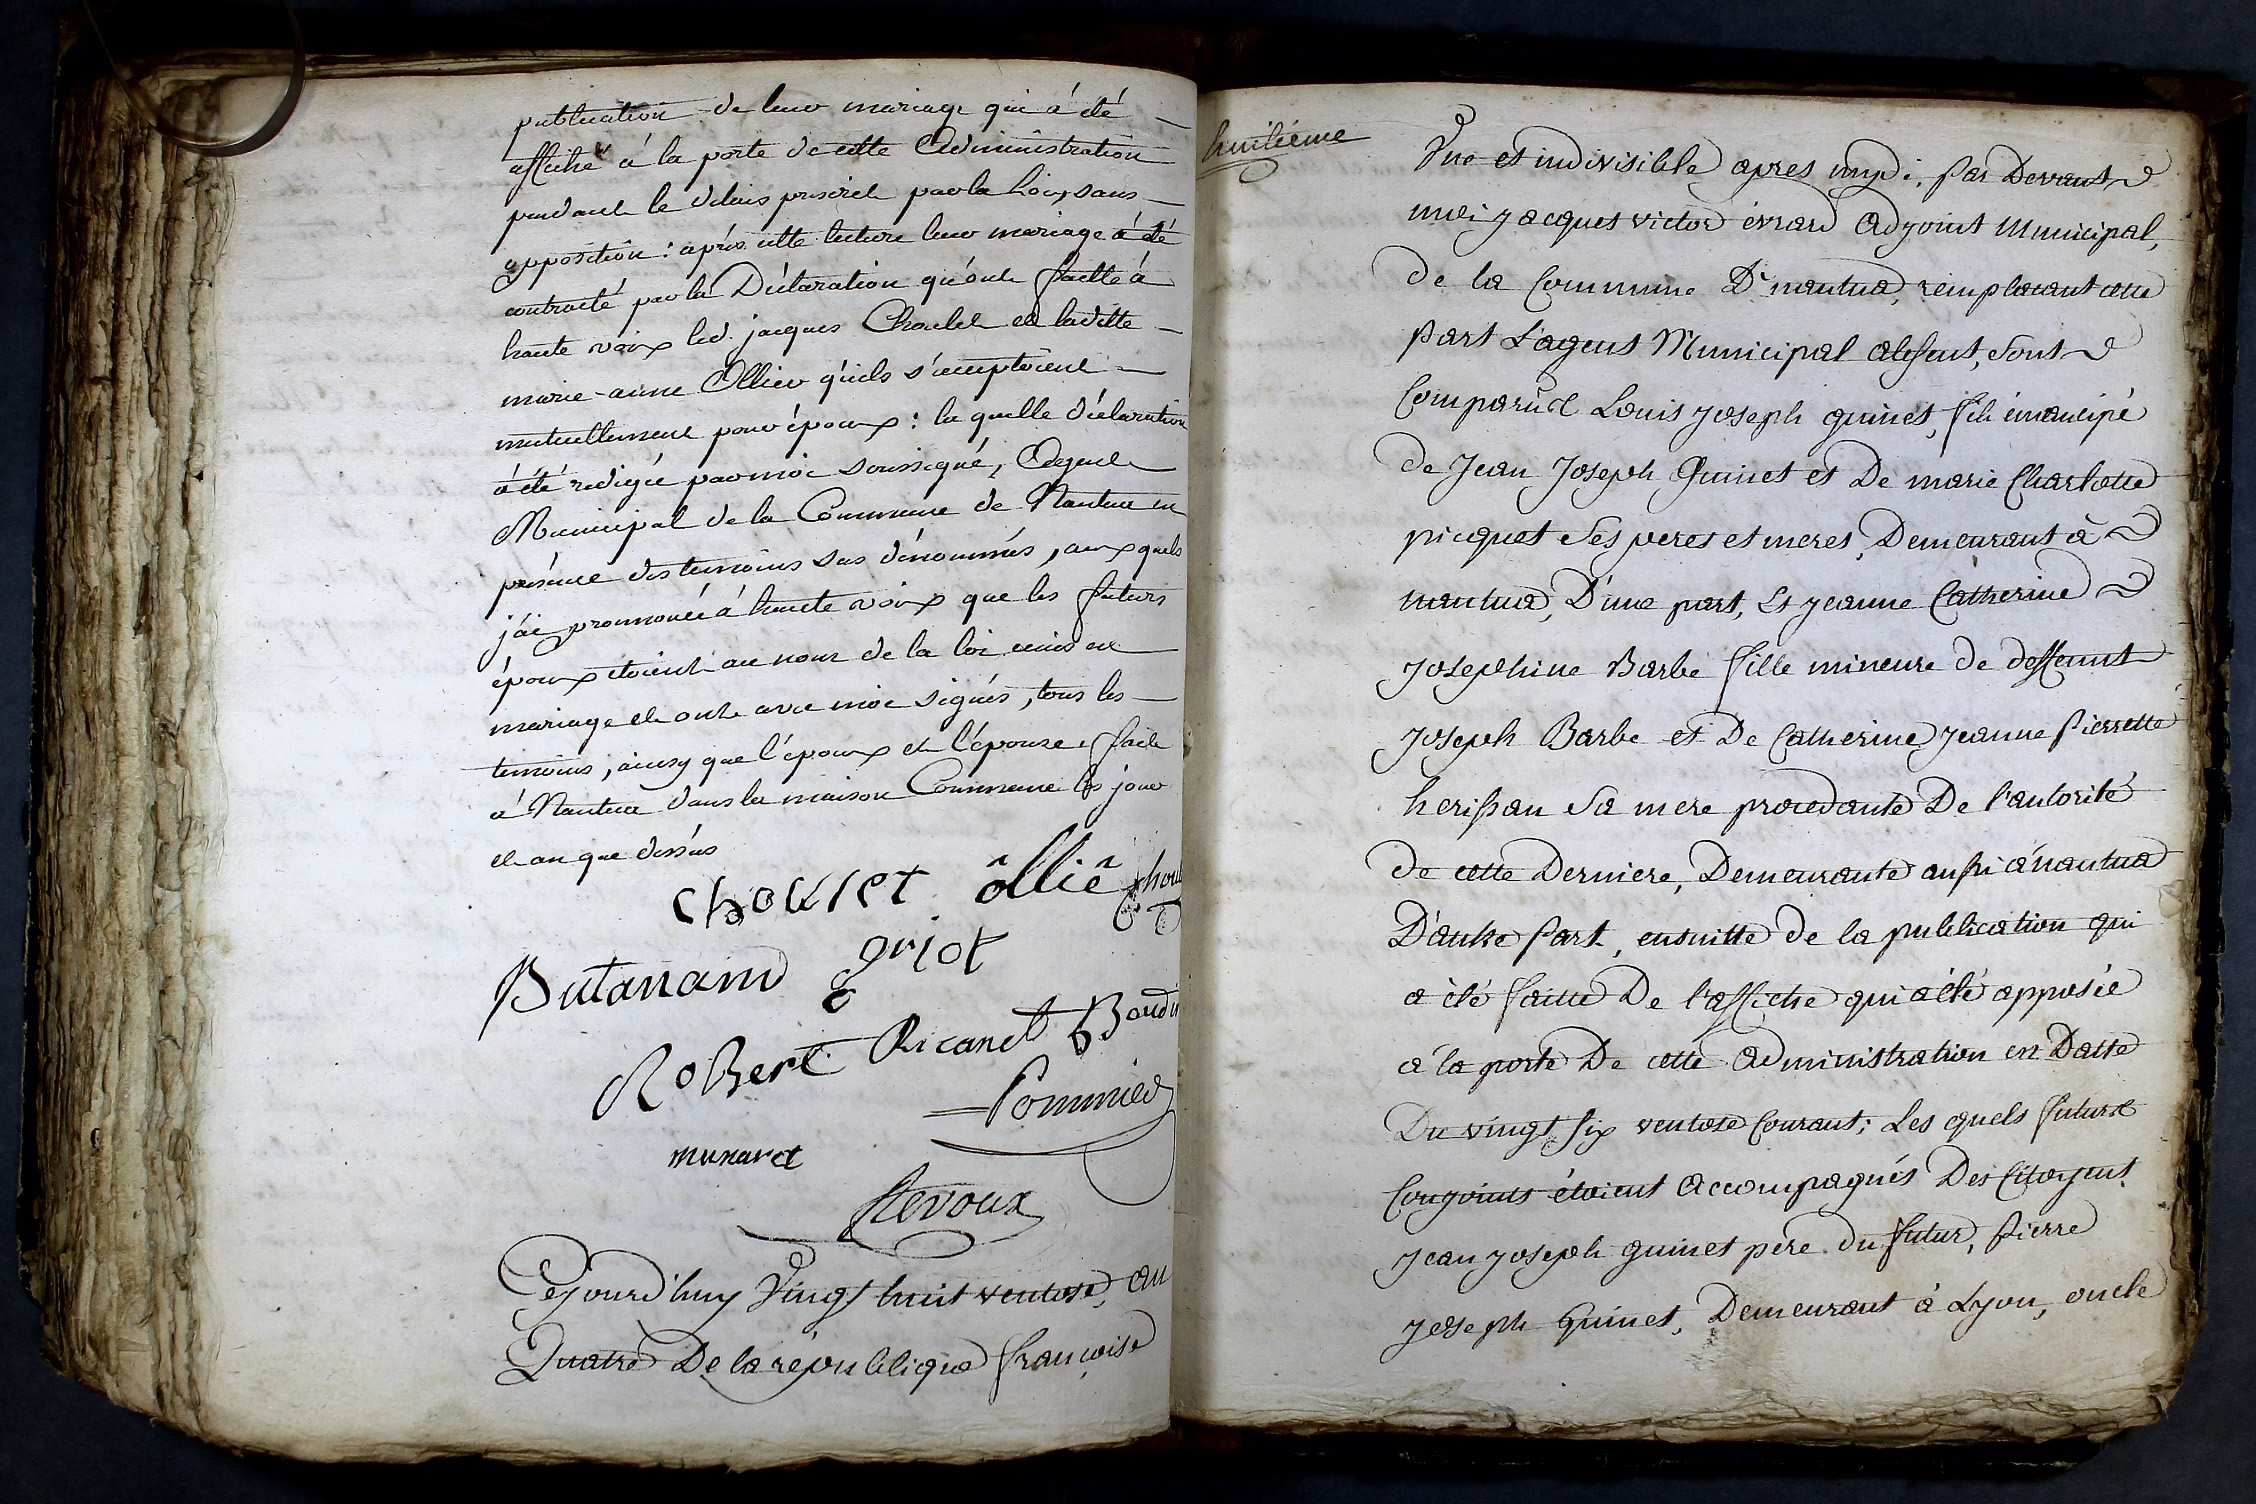 publication de leur mariage qui á été
affiché à la porte de cette Administration
pendant le délais prescrit par la Loi, sans
opposition : après cette lecture leur mariage á été
contracté par la Déclaration qu'ont faitte á
haute voix led. jacques Choulet et laditte
marie-anne Ollier qu'ils s'acceptoient
mutuellement pour époux : la quelle déclaration
á été redigée par moi soussigné, Agent
Municipal de la Commune de Nantua en
présence des temoins sus dénommés, aux quels
j'ai prononcé á haute voix que les futurs
époux étoient au nom de la loi unis en
mariage et ont avec moi signés, tous les
temoins, ainsy que l'époux et l'épouse. fait
á Nantua dans la maison Commune les jour
et an que dessus
choulet ôlliê
griot
Butavand
Robert Ricanet Baudin
Pommier
munaret
Cejourd'huy Vingt huit ventose, an
Quatre De la république françoise
huitiéme
Une et indivisible apres midi; par Devant
moi jacques victor évrard Adjoint Municipal,
de la Commune De nantua, remplacant cette
part L'agent Municipal absent, sont
Comparus Louis joseph guinet, fils émancipé
de Jean Joseph Guinet et De marie Charlotte
picquet ses peres et meres, Demeurant à
nantua, D'une part, Et jeanne Catherine
josephine Barbe fille mineure de deffeunt
joseph Barbe et De Catherine jeanne Pierrette
herissan sa mere procedante De l'autorité
de cette Derniere, Demeurante aussi á nantua
D'autre part, ensuitte de la publication qui
a été faitte De l'affiche qui a été apposée
a la porte De cette Administration en Datte
Du vingt six ventose Courant; Les quels futurs
Conjoints étoient accompagnés Des Citoyens
jean joseph guinet pére du futur, Pierre
joseph guinet, Demeurant à Lyon, oncle